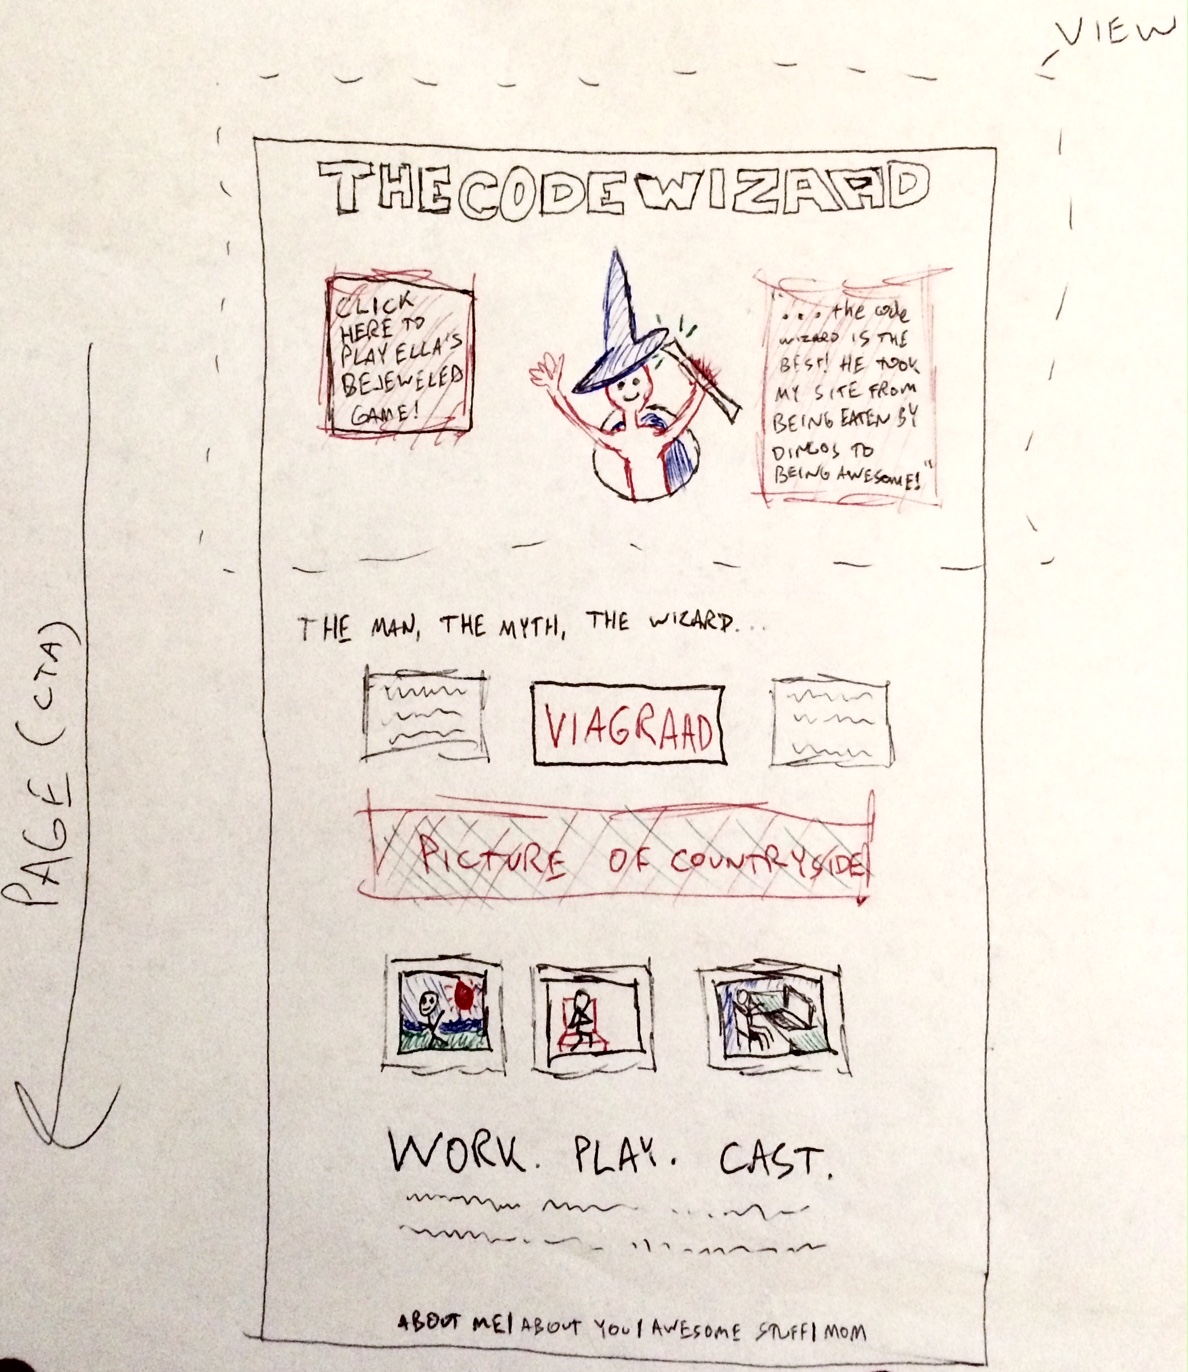 VIEW
THECODEWIZAAD
CLICK
HERE TO
PLAY ELLA'S
BEJEWELED
GAME!
"... the code
WIZARD IS THE
BEST! HE TOOK
MY SITE FROM
BEING EATEN BY
DINGOS TO
BEING AWESOME!"
PAGE (CTA)
THE MAN, THE MYTH, THE WIZARD...
VIAGRAAD
PICTURE OF COUNTRYSIDE
WORK. PLAY. CAST.
ABOUT ME| ABOUT YOU| AWESOME STUFF| MOM